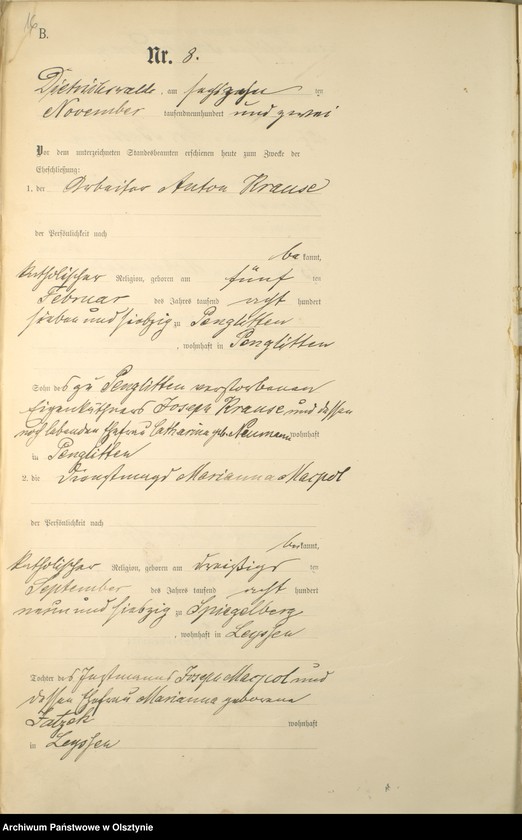 16
B.
Nr. 8.
Dietrichswalde, am sechszehn ten
November tausendneunhundert und zwei
Vor dem unterzeichneten Standesbeamten erschienen heute zum Zwecke der
Eheschließung:
1. der Arbeiter Anton Krause
der Persönlichkeit nach
be kannt,
katholischer Religion, geboren am fünf ten
Februar des Jahres tausend acht hundert
sieben und siebzig zu Penglitten
, wohnhaft in Penglitten
Sohn des zu Penglitten verstorbenen
Eigenkäthners Joseph Krause und dessen
noch lebenden Ehefrau Catharina geb. Neumann wohnhaft
in Penglitten
2. die Dienstmagd Marianna Macpol
der Persönlichkeit nach
bekannt,
katholischer Religion, geboren am dreißigs ten
September des Jahres tausend acht hundert
neun und siebzig zu Spiegelberg
, wohnhaft in Leyssen
Tochter des Instmanns Joseph Macpol und
dessen Ehefrau Marianna geborene
wohnhaft
in Leyssen
Archiwum Państwowe w Olsztynie